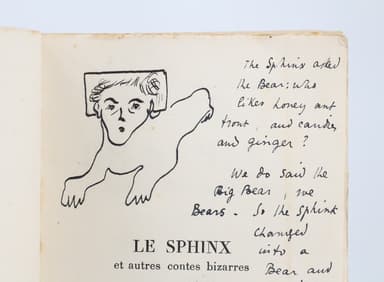 The Sphinx asked
the Bear: who
likes honey and
trout, and candies
and ginger?
We do said the
Big Bear, we
Bears. So the Sphinx
changed
into a
Bear and
LE SPHINX
et autres contes bizarres